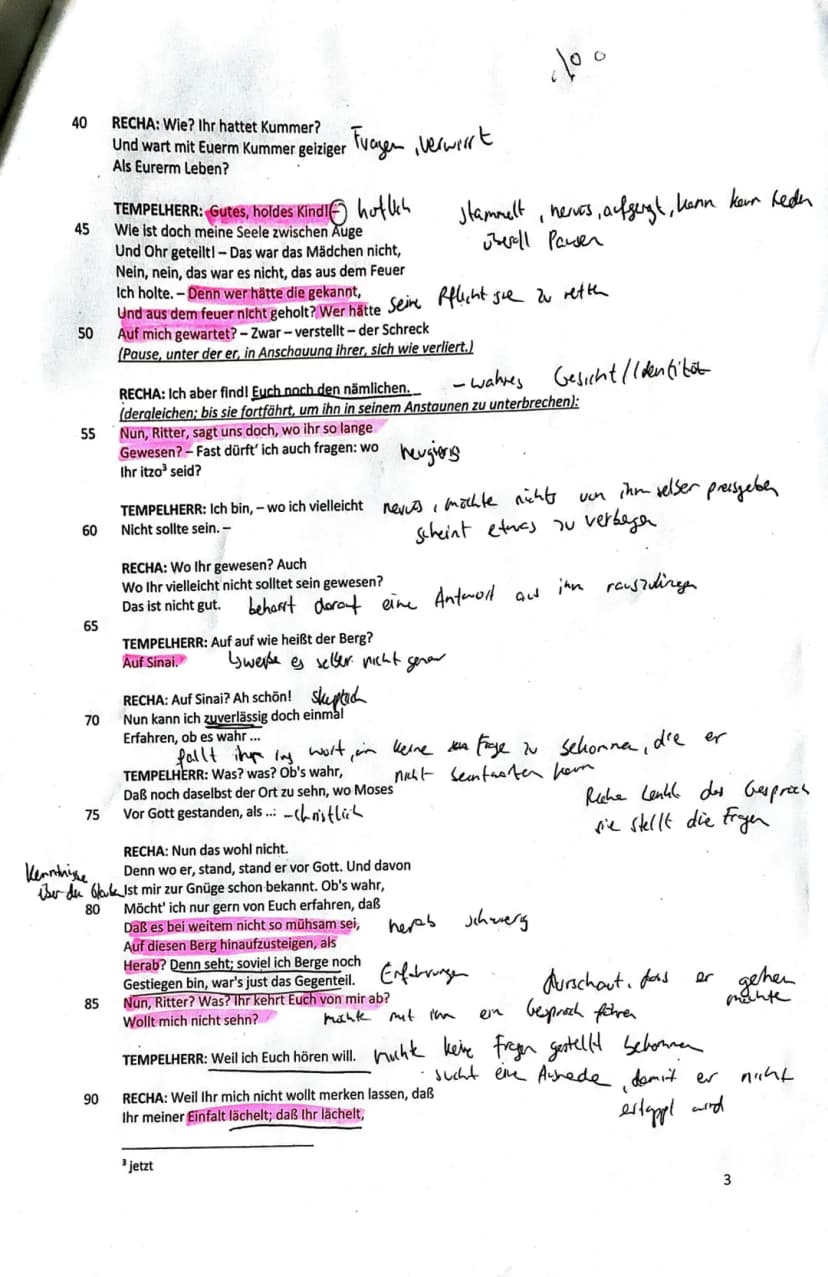 40 RECHA: Wie? Ihr hattet Kummer?
Und wart mit Euerm Kummer geiziger
Fragen, verwirrt
Als Eurerm Leben?
TEMPELHERR: Gutes, holdes Kind! –
höflich
stammelt, nervös, aufgeregt, kann kein reden
überall Pausen
45 Wie ist doch meine Seele zwischen Auge
Und Ohr geteilt! – Das war das Mädchen nicht,
Nein, nein, das war es nicht, das aus dem Feuer
Ich holte. – Denn wer hätte die gekannt,
Und aus dem feuer nicht geholt? Wer hätte
seine Pflicht sie zu retten
50 Auf mich gewartet? – Zwar – verstellt – der Schreck
(Pause, unter der er, in Anschauung ihrer, sich wie verliert.)
RECHA: Ich aber find! Euch noch den nämlichen. –
- wahres Gesicht/Identität
(dergleichen; bis sie fortfährt, um ihn in seinem Anstaunen zu unterbrechen):
55 Nun, Ritter, sagt uns doch, wo ihr so lange
Gewesen? – Fast dürft' ich auch fragen: wo
neugierig
Ihr itzo³ seid?
TEMPELHERR: Ich bin, – wo ich vielleicht
nervös, möchte nichts von ihm selber preisgeben
60 Nicht sollte sein. –
scheint etwas zu verbergen
RECHA: Wo Ihr gewesen? Auch
Wo Ihr vielleicht nicht solltet sein gewesen?
Das ist nicht gut.
beharrt darauf eine Antwort aus ihm rauszudringen
65
TEMPELHERR: Auf auf wie heißt der Berg?
Auf Sinai.
weiße es selber nicht genau
RECHA: Auf Sinai? Ah schön!
skeptisch
70 Nun kann ich zuverlässig doch einmal
Erfahren, ob es wahr ...
fällt ihr ins wort, um keine Frage zu bekommen, die er
nicht beantworten kann
TEMPELHERR: Was? was? Ob's wahr,
Daß noch daselbst der Ort zu sehn, wo Moses
75 Vor Gott gestanden, als ..:
- christlich
Recha lenkt das Gespräch
sie stellt die Fragen
RECHA: Nun das wohl nicht.
Denn wo er, stand, stand er vor Gott. Und davon
Kenntnisse
über den Glaube
Ist mir zur Gnüge schon bekannt. Ob's wahr,
80 Möcht' ich nur gern von Euch erfahren, daß
Daß es bei weitem nicht so mühsam sei,
herab schwierig
Auf diesen Berg hinaufzusteigen, als
Herab? Denn seht; soviel ich Berge noch
Gestiegen bin, war's just das Gegenteil.
Erfahrungen
85 Nun, Ritter? Was? Ihr kehrt Euch von mir ab?
durschaut, dass er gehen
möchte
Wollt mich nicht sehn?
möchte mit ihm ein Gespräch führen
TEMPELHERR: Weil ich Euch hören will.
möchte keine Fragen gestellt bekommen
- sucht eine Ausrede, damit er nicht
ertappt wird
90 RECHA: Weil Ihr mich nicht wollt merken lassen, daß
Ihr meiner Einfalt lächelt; daß Ihr lächelt,
³ jetzt
3